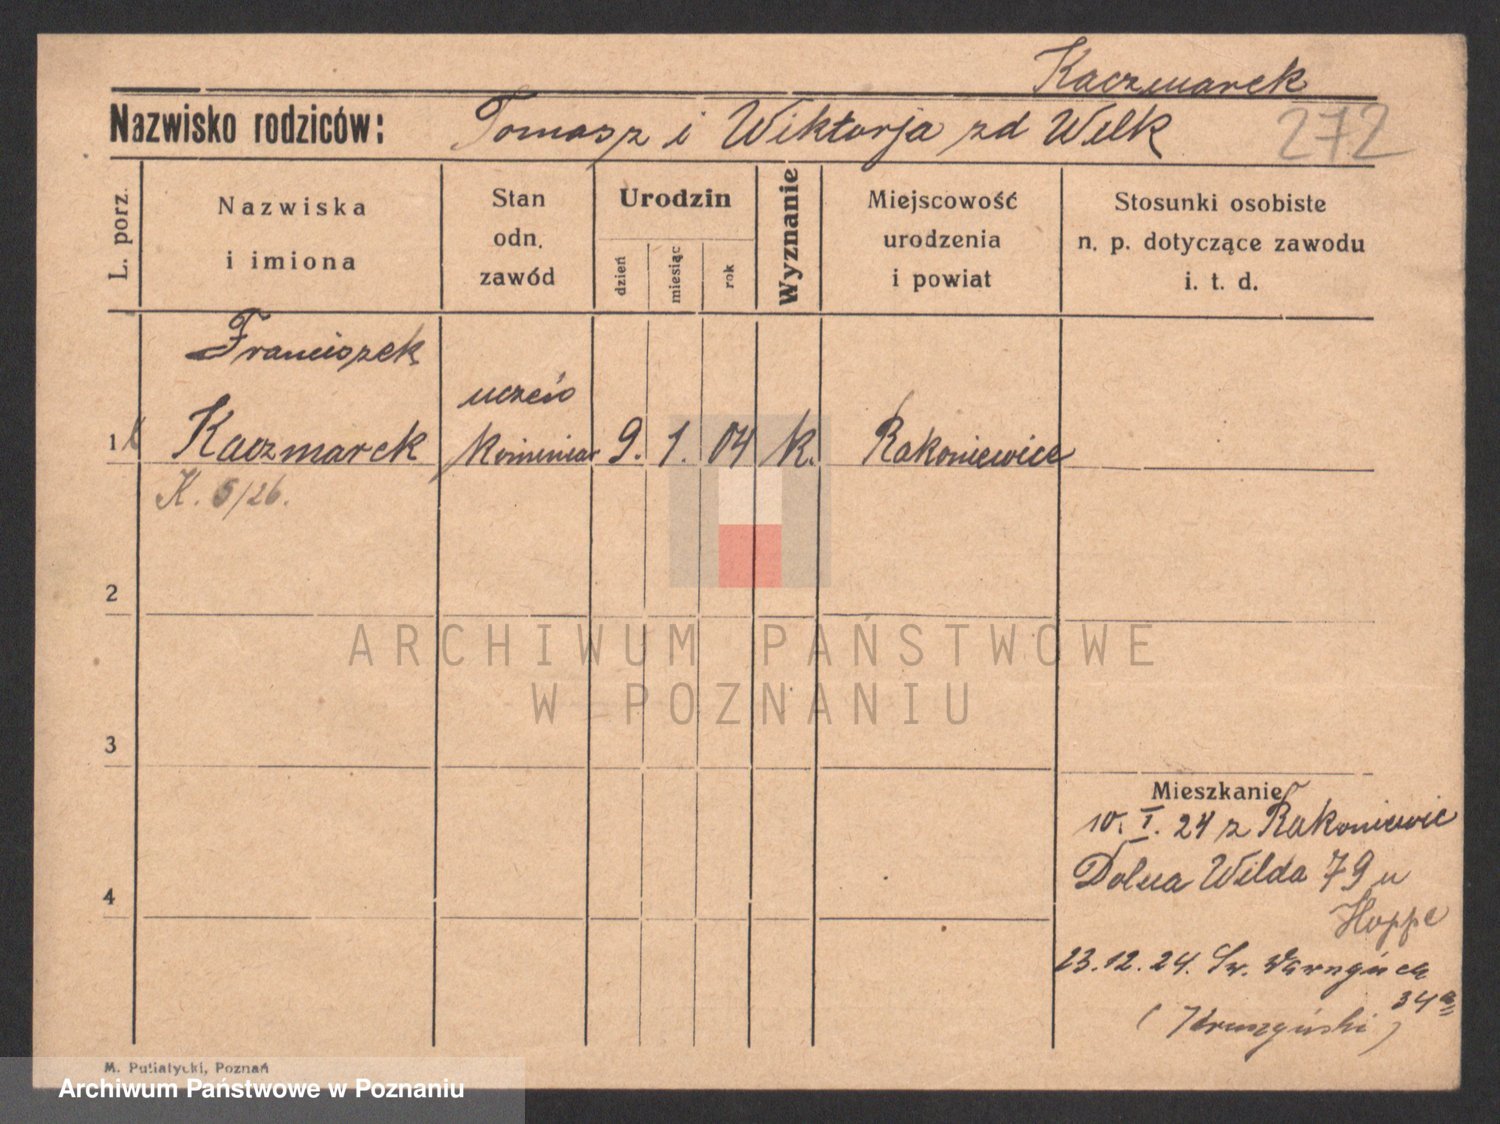 Kaczmarek
Nazwisko rodziców: Tomasz i Wiktorja zd Welk 272
L. porz.
Nazwiska
i imiona
Stan
odn.
zawód
Urodzin
dzień
miesiąc
rok
Wyznanie
Miejscowość
urodzenia
i powiat
Stosunki osobiste
n. p. dotyczące zawodu
i. t. d.
Franciszek
uczeń
1 Kaczmarek kominiar 9. 1. 04 k. Rakoniewice
K. 5/26.
2
3
4
Mieszkanie
10. I. 24 z Rakoniewic
Dolna Wilda 79 u
Hoppe
23.12.24. Św.
34a
ARCHIWUM PAŃSTWOWE
W POZNANIU
M. Putiatycki, Poznań
Archiwum Państwowe w Poznaniu